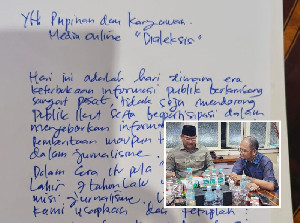 Yth Pimpinan dan Karyawan
Media online "Dialeksis"
Hari ini adalah hari dimana era
keterbukaan informasi publik berkembang
sangat pesat, tidak saja mendorong
publik ikut serta berpartisipasi dalam
menyebarkan informa
pemberitaan maupun
dalam jurnalisme
Dalam era itu pula
Lahir 7 tahun lalu
misi jurnalisme
kami ucapkan dan